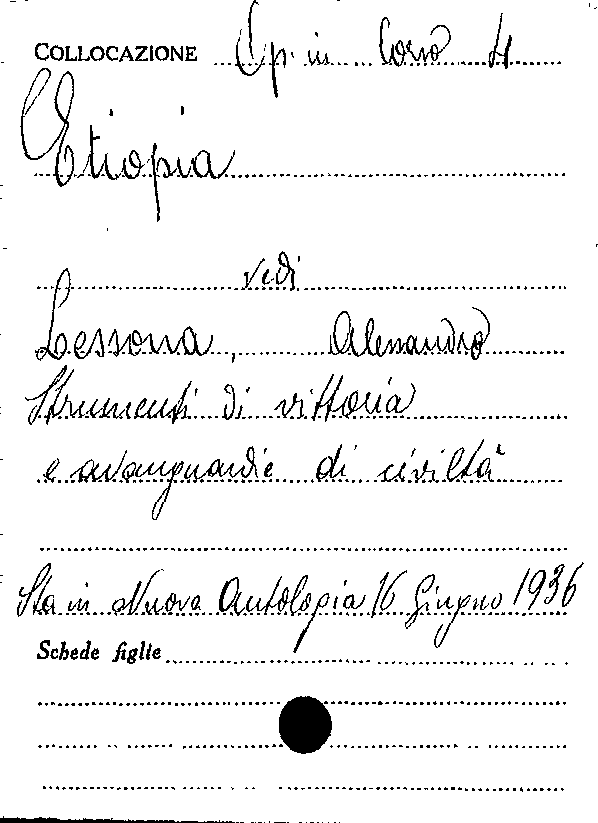 COLLOCAZIONE Op. in Corso 4
Etiopia
vedi
Lessona, Alessandro
Strumenti di vittoria
e avanguardie di civiltà
Sta in Nuova Antologia 16 Giugno 1936
Schede figlie